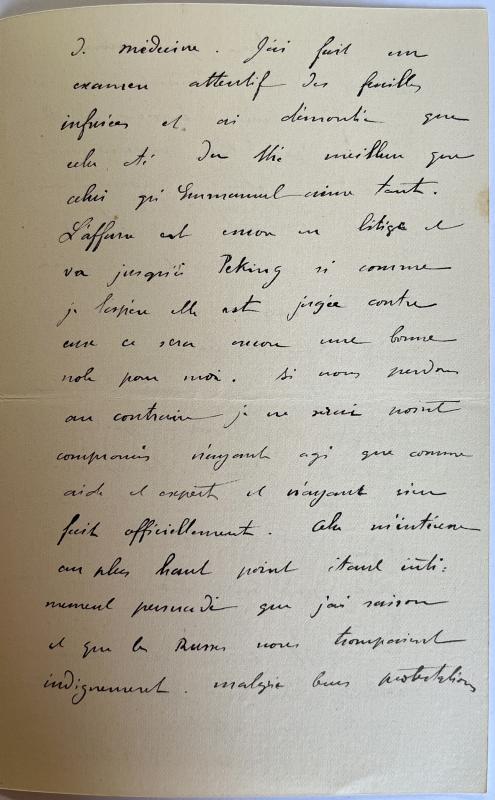 d. médecine. J'ai fait un
examen attentif des feuilles
infusées et ai démontré que
cela été du thé meilleur que
celui qu'Emmanuel aime tant.
L'affaire est encore en litige et
va jusqu'à Peking si comme
je l'espère elle est jugée contre
eux ce sera encore une bonne
note pour moi. Si nous perdons
au contraire je ne serai point
compromis n'ayant agi que comme
aide et expert et n'ayant rien
fait officiellement. Cela m'intéresse
au plus haut point étant inti-
mement persuadé que j'ai raison
et que les Russes nous trompaient
indignement. malgré leurs protestations